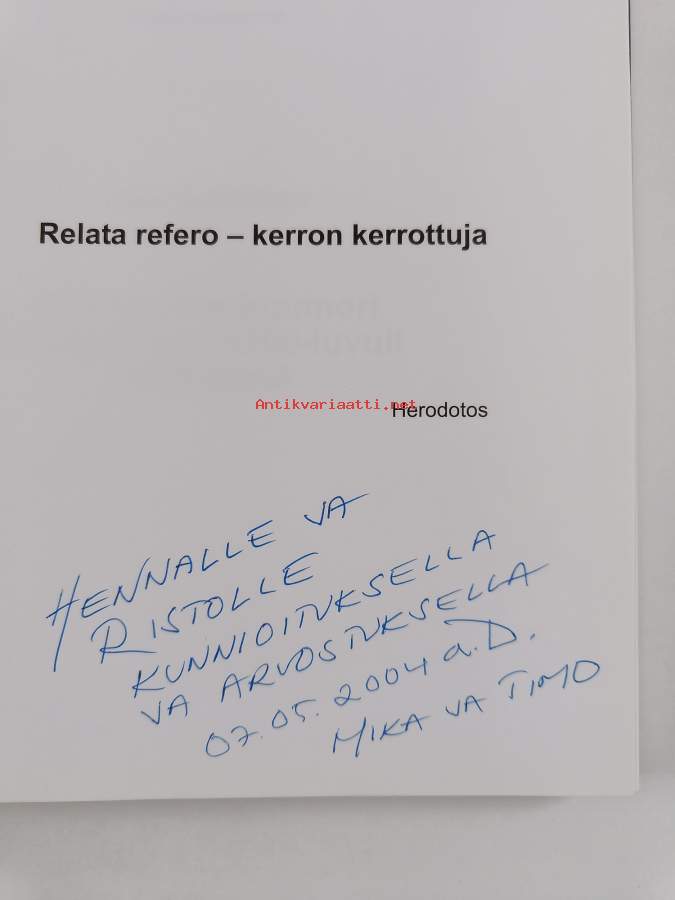 Relata refero – kerron kerrottuja
Antikvariaatti.net
Herodotos
HENNALLE VA
RISTOLLE
KUNNIOITUKSELLA
VA ARVOSTUKSELLA
07.05.2004 a.D.
MIKA VA TIMO